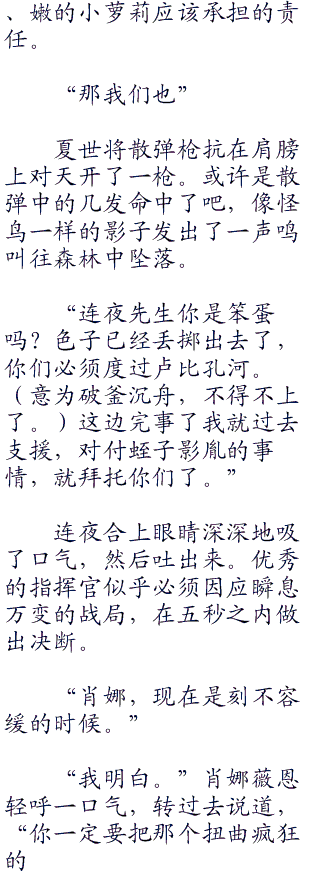 、嫩的小萝莉应该承担的责
任。
“那我们也”
夏世将散弹枪抗在肩膀
上对天开了一枪。或许是散
弹中的几发命中了吧，像怪
鸟一样的影子发出了一声鸣
叫往森林中坠落。
“连夜先生你是笨蛋
吗？色子已经丢掷出去了，
你们必须度过卢比孔河。
（意为破釜沉舟，不得不上
了。）这边完事了我就过去
支援，对付蛭子影胤的事
情，就拜托你们了。”
连夜合上眼睛深深地吸
了口气，然后吐出来。优秀
的指挥官似乎必须因应瞬息
万变的战局，在五秒之内做
出决断。
“肖娜，现在是刻不容
缓的时候。”
“我明白。”肖娜薇恩
轻呼一口气，转过去说道，
“你一定要把那个扭曲疯狂
的